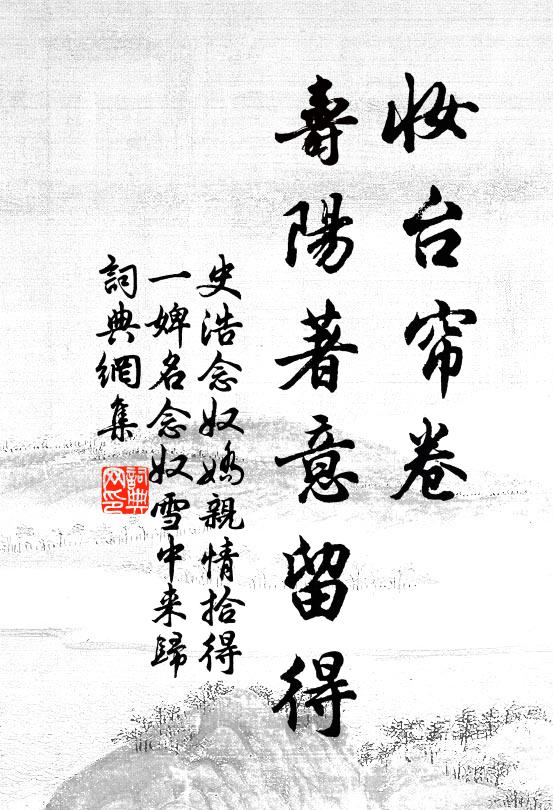 妆台帘卷
壽陽著意留得
史浩念奴嬌親情拾得
一婢名念奴雪中来歸
詞典網集
詞典网印